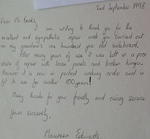 2nd September 1998
Dear Mr Cooke,
I am writing to thank you for the
excellent and sympathetic repair work you carried out
on my grandmother's one hundred year old sideboard.
After many years of use it was left in a poor
state of repair with loose panels and broken hinges.
However it is now in perfect working order and is
fit to use for another 100 years!
Many thanks for your friendly and caring service
Yours sincerely,
Maureen